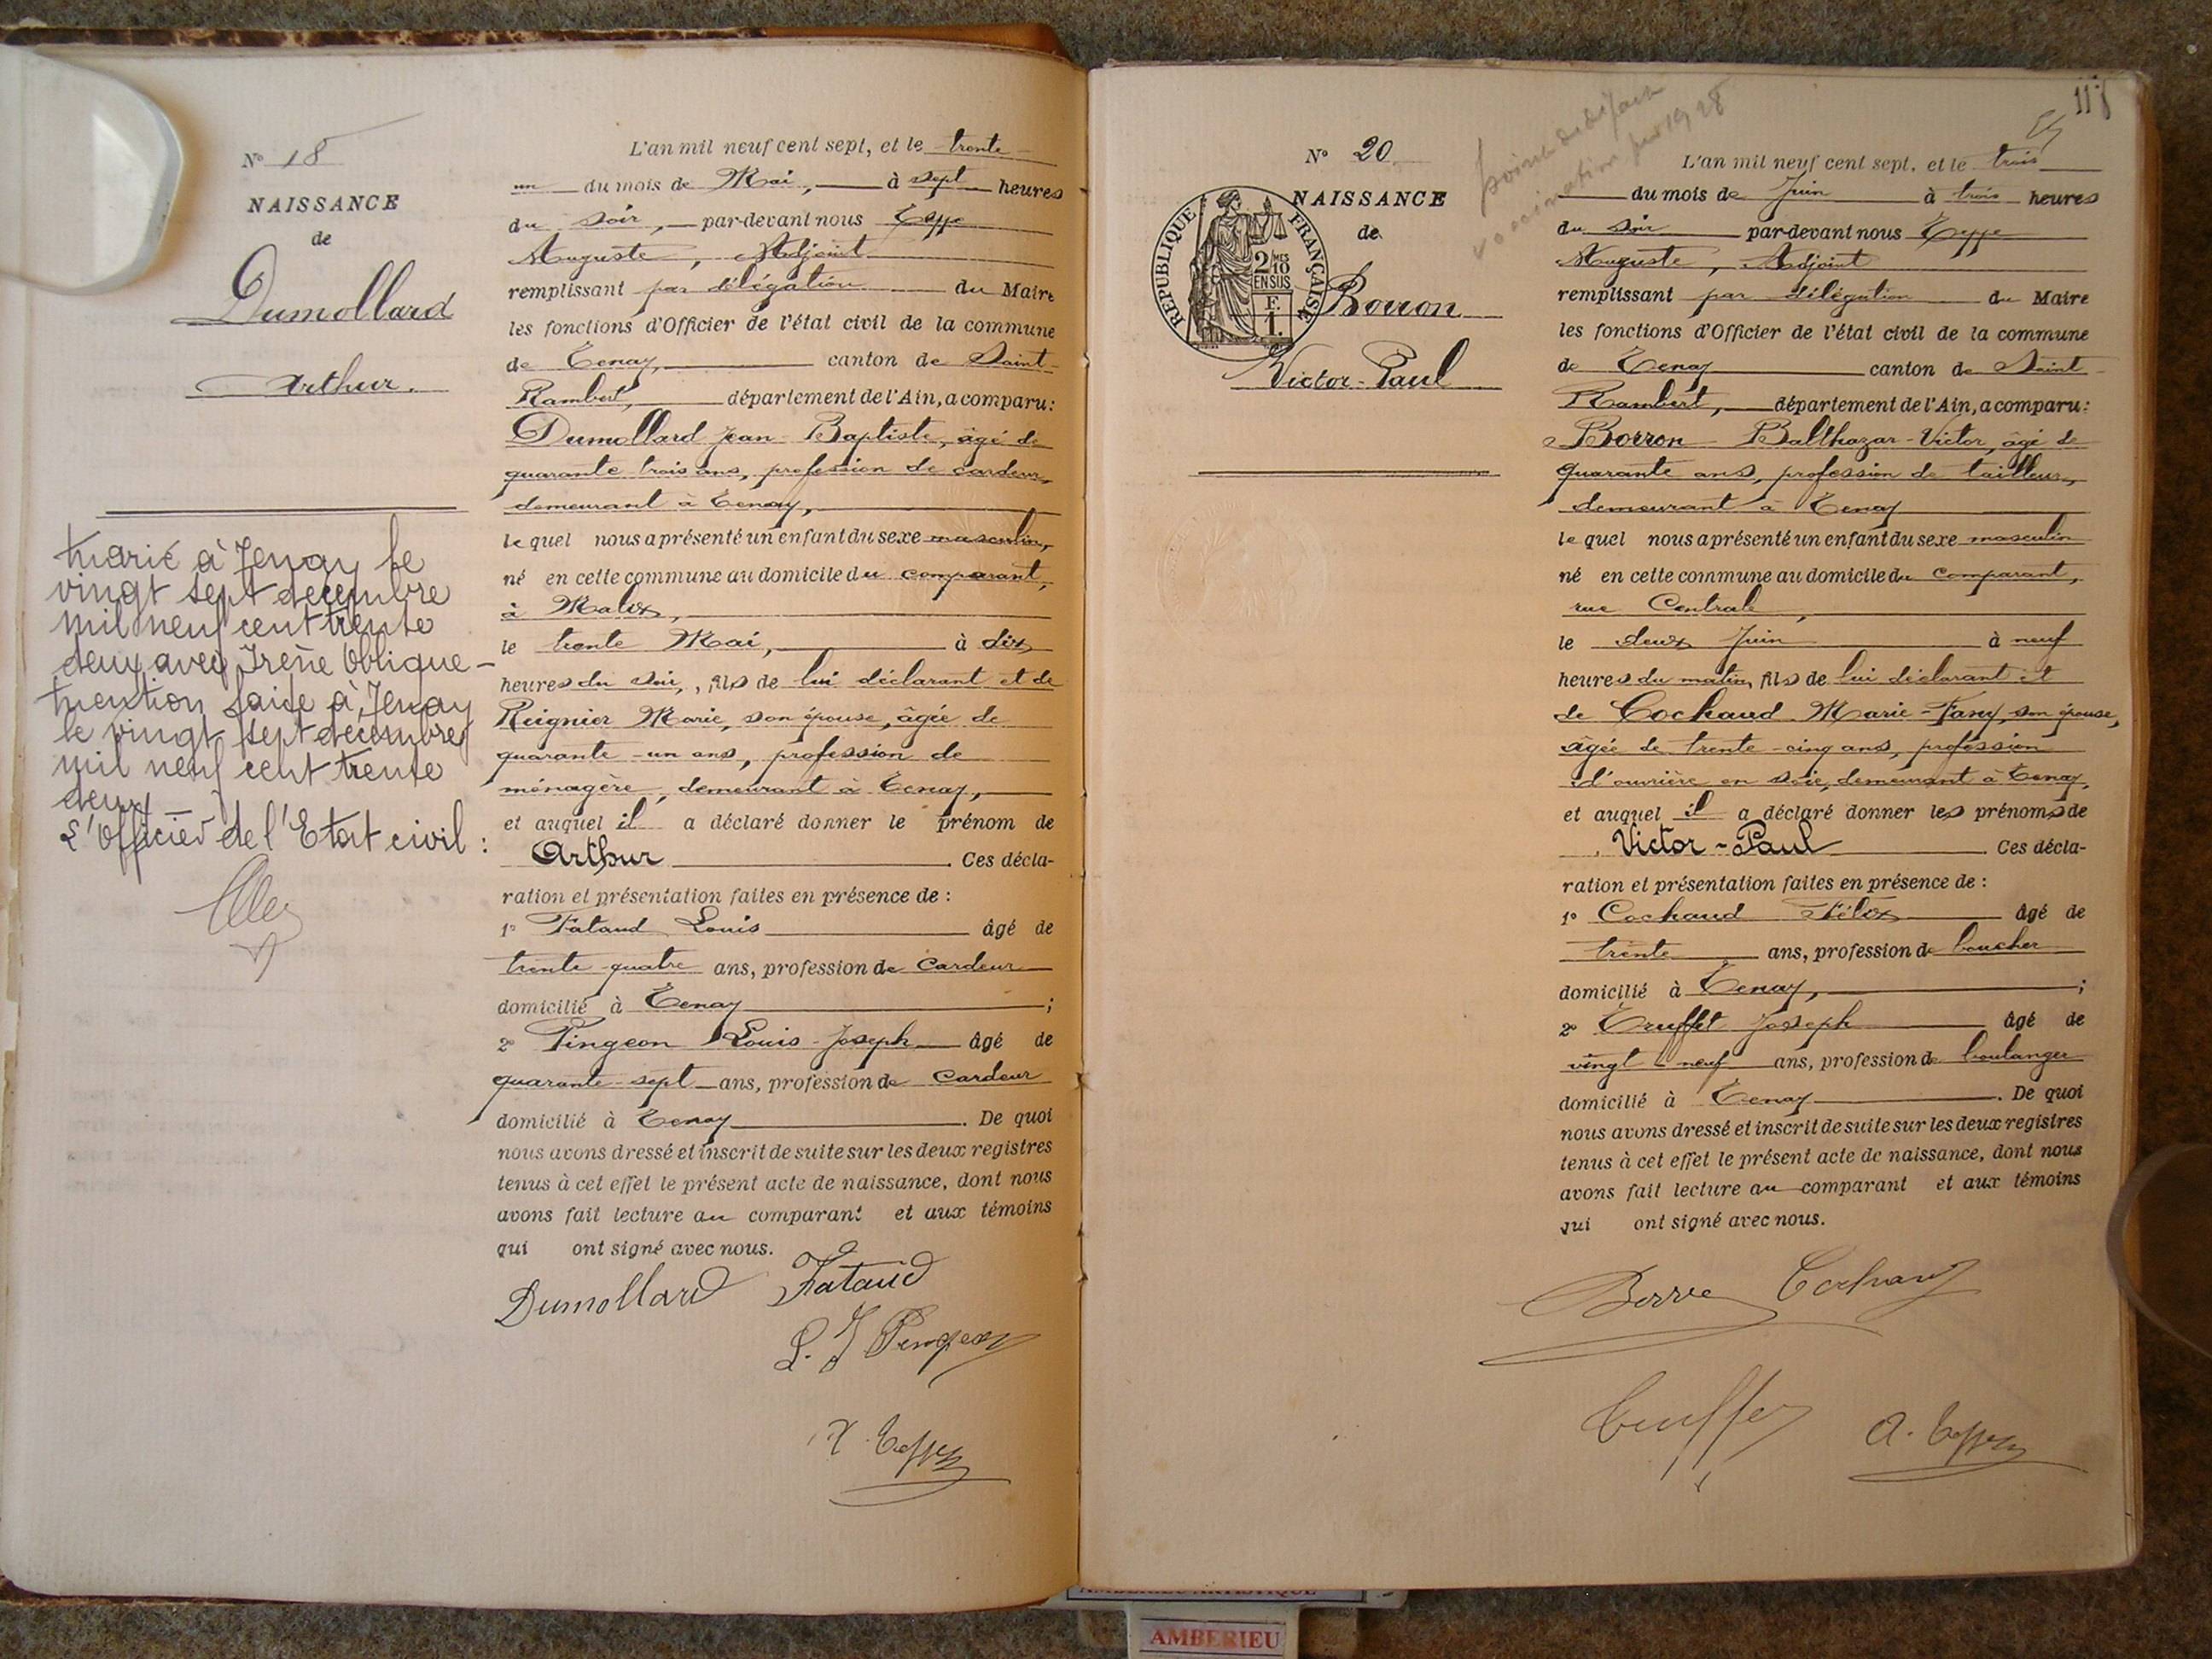 N° 18
NAISSANCE
de
Dumollard
Arthur.
Marié à Tenay le
vingt sept decembre
mil neuf cent trente
deux avec Irène Oblique -
mention faite à Tenay
le vingt sept decembre
mil neuf cent trente
deux -
L'Officier de l'Etat civil :
L'an mil neuf cent sept, et le trente
un du mois de Mai, à sept heures
du soir, par-devant nous Teppe
Auguste, Adjoint
remplissant par délégation du Maire
les fonctions d'Officier de l'état civil de la commune
de Tenay, canton de Saint-
Rambert, département de l'Ain, a comparu :
Dumollard Jean-Baptiste, âgé de
quarante trois ans, profession de cardeur,
demeurant à Tenay,
le quel nous a présenté un enfant du sexe masculin,
né en cette commune au domicile du comparant,
à Malix,
le trente Mai, à dix
heures du soir, fils de lui déclarant et de
Reignier Marie, son épouse, âgée de
quarante-un ans, profession de
ménagère, demeurant à Tenay,
et auquel il a déclaré donner le prénom de
Arthur. Ces décla-
ration et présentation faites en présence de :
1° Fataud Louis âgé de
trente-quatre ans, profession de Cardeur
domicilié à Tenay ;
2° Pingeon Louis-Joseph âgé de
quarante-sept ans, profession de Cardeur
domicilié à Tenay. De quoi
nous avons dressé et inscrit de suite sur les deux registres
tenus à cet effet le présent acte de naissance, dont nous
avons fait lecture au comparant et aux témoins
qui ont signé avec nous.
Dumollard Fataud
L. J Pingeon
A. Teppe
118
N° 20
NAISSANCE
de
REPUBLIQUE FRANÇAISE
2 MES
10
EN SUS
F.
1.
Borron
Victor-Paul
L'an mil neuf cent sept, et le trois
du mois de Juin à trois heures
du soir par-devant nous Teppe
Auguste, Adjoint
remplissant par délégation du Maire
les fonctions d'Officier de l'état civil de la commune
de Tenay canton de Saint-
Rambert, département de l'Ain, a comparu :
Borron Balthazar-Victor, âgé de
quarante ans, profession de tailleur,
demeurant à Tenay
le quel nous a présenté un enfant du sexe masculin
né en cette commune au domicile du comparant,
rue Centrale,
le deux Juin à neuf
heures du matin, fils de lui déclarant et
de Cochaud Marie-Fany, son épouse,
âgée de trente-cinq ans, profession
d'ouvrière en soie, demeurant à Tenay,
et auquel il a déclaré donner les prénoms de
Victor-Paul. Ces décla-
ration et présentation faites en présence de :
1° Cochaud Félix âgé de
trente ans, profession de boucher
domicilié à Tenay, ;
2° Truffet Joseph âgé de
vingt neuf ans, profession de boulanger
domicilié à Tenay. De quoi
nous avons dressé et inscrit de suite sur les deux registres
tenus à cet effet le présent acte de naissance, dont nous
avons fait lecture au comparant et aux témoins
qui ont signé avec nous.
A. Teppe
AMBERIEU ARTISTIQUE
AMBERIEU